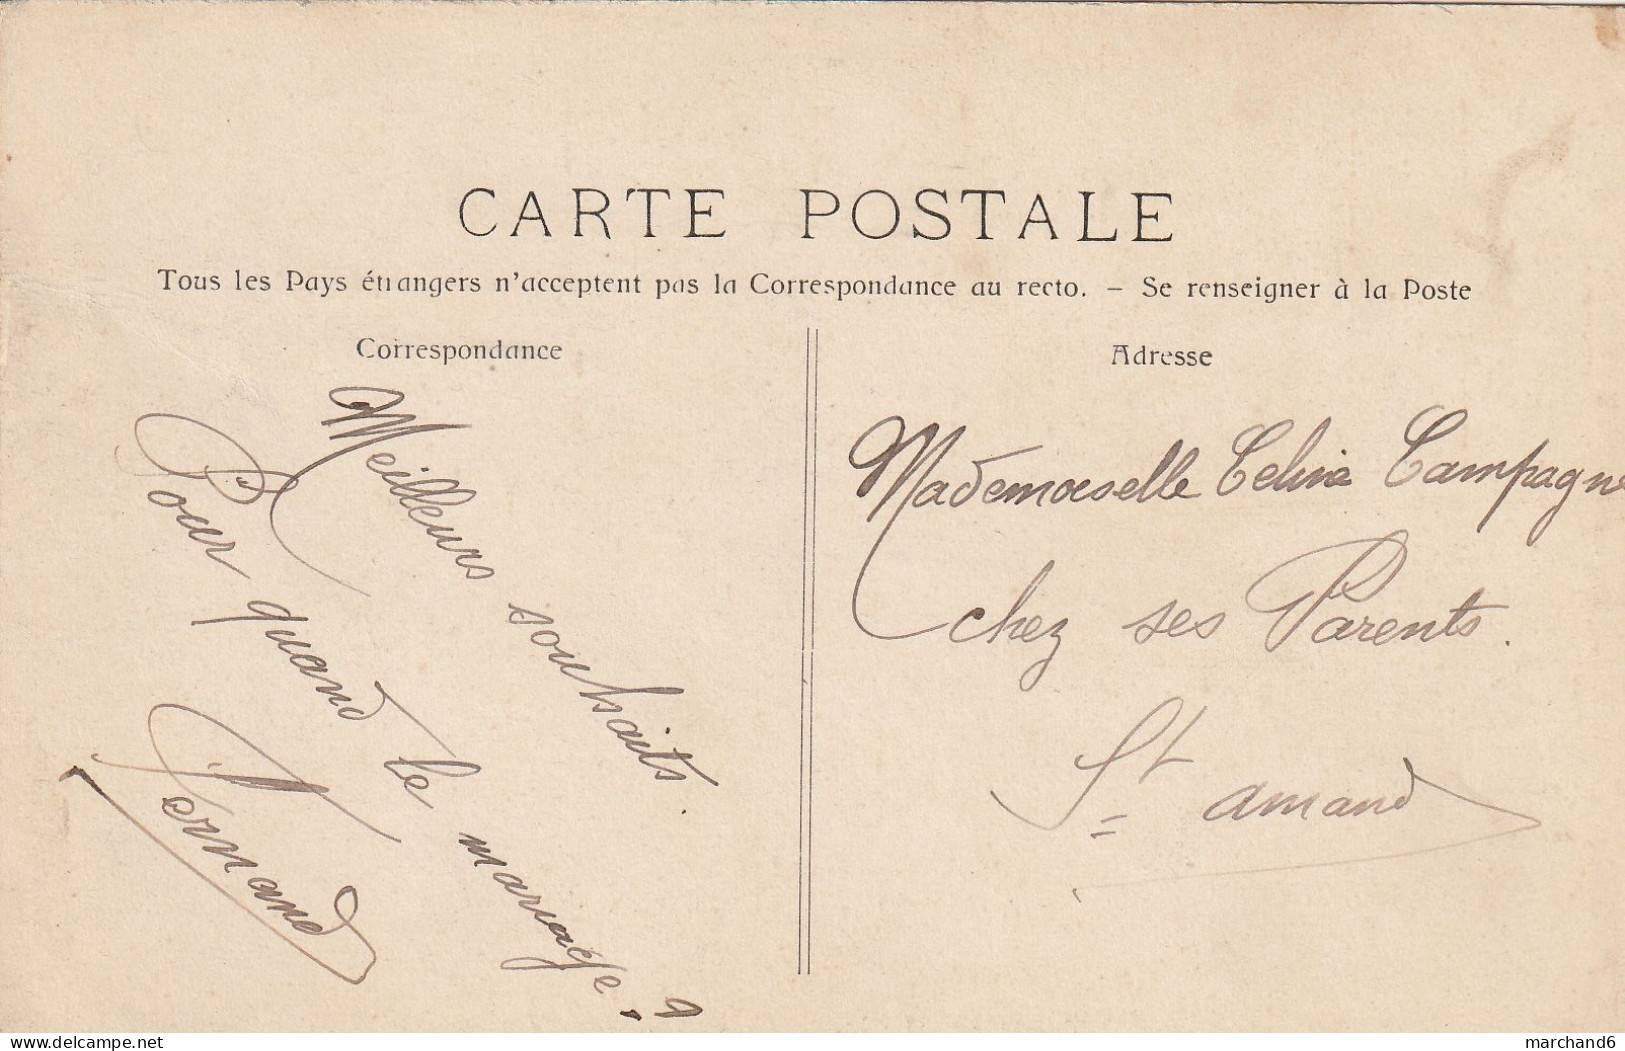 CARTE POSTALE
Tous les Pays étrangers n'acceptent pas la Correspondance au recto. – Se renseigner à la Poste
Correspondance
Meilleurs souhaits.
Pour quand le mariage?
Fernand
Adresse
Mademoiselle Celina Campagne
chez ses Parents.
St amand
delcampe.net
marchand6